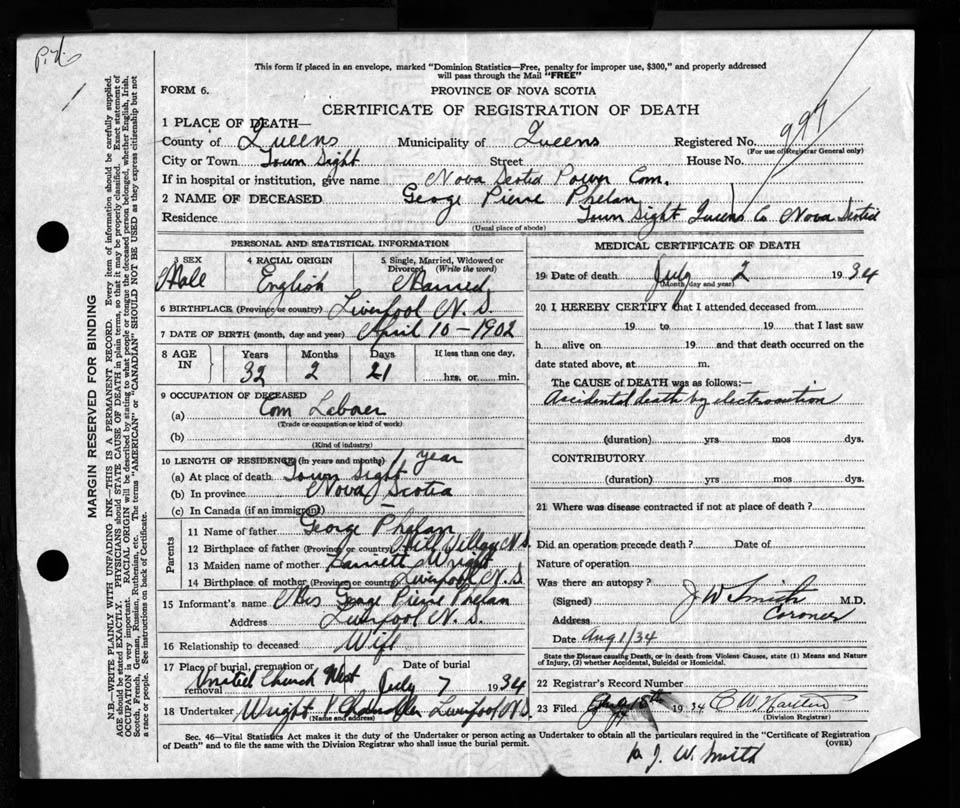 This form if placed in an envelope, marked "Dominion Statistics—Free, penalty for improper use, $300," and properly addressed
will pass through the Mail "FREE"
FORM 6. PROVINCE OF NOVA SCOTIA
CERTIFICATE OF REGISTRATION OF DEATH
1 PLACE OF DEATH—
County of Queens Municipality of Queens Registered No. 997
(For use of Registrar General only)
City or Town Town Sight Street House No.
If in hospital or institution, give name Nova Scotia Power Com.
2 NAME OF DECEASED George Pierre Phelan
Residence Town Sight Queens Co. Nova Scotia
(Usual place of abode)
PERSONAL AND STATISTICAL INFORMATION
3 SEX 4 RACIAL ORIGIN 5 Single, Married, Widowed or
Divorced (Write the word)
Male English Married
6 BIRTHPLACE (Province or country) Liverpool N. S.
7 DATE OF BIRTH (month, day and year) April 10-1902
8 AGE IN Years Months Days If less than one day,
32 2 21 hrs. or min.
9 OCCUPATION OF DECEASED
(a) Com Laborer
(Trade or occupation or kind of work)
(b)
(Kind of industry)
10 LENGTH OF RESIDENCE (In years and months) 1 year
(a) At place of death Town Sight
(b) In province Nova Scotia
(c) In Canada (if an immigrant)
Parents
11 Name of father George Phelan
12 Birthplace of father (Province or country) Mill Village N.S.
13 Maiden name of mother Wright
14 Birthplace of mother (Province or country) Liverpool N. S.
15 Informant's name Mrs George Pierre Phelan
Address Liverpool N. S.
16 Relationship to deceased Wife
17 Place of burial, cremation or removal United Church West Date of burial July 7 1934
18 Undertaker Wright & Chandler Liverpool N.S.
(Name and address)
MEDICAL CERTIFICATE OF DEATH
19 Date of death July 2 1934
(Month, day and year)
20 I HEREBY CERTIFY that I attended deceased from
19 to 19 that I last saw
h alive on 19 and that death occurred on the
date stated above, at m.
The CAUSE of DEATH was as follows:—
Accidental death by electrocution
(duration) yrs mos dys.
CONTRIBUTORY
(duration) yrs mos dys.
21 Where was disease contracted if not at place of death?
Did an operation precede death? Date of
Nature of operation
Was there an autopsy?
(Signed) J W Smith M.D.
Address Coroner
Date Aug 1/34
State the Disease causing Death, or in death from Violent Causes, state (1) Means and Nature
of Injury, (2) whether Accidental, Suicidal or Homicidal.
22 Registrar's Record Number
23 Filed 1934 C W
(Division Registrar)
Sec. 46—Vital Statistics Act makes it the duty of the Undertaker or person acting as Undertaker to obtain all the particulars required in the "Certificate of Registration
of Death" and to file the same with the Division Registrar who shall issue the burial permit. (OVER)
J. W. Smith
MARGIN RESERVED FOR BINDING
N.B.—WRITE PLAINLY WITH UNFADING INK—THIS IS A PERMANENT RECORD. Every item of information should be carefully supplied.
AGE should be stated EXACTLY. PHYSICIANS should STATE CAUSE OF DEATH in plain terms, so that it may be properly classified. Exact statement of
OCCUPATION is very important. RACIAL ORIGIN will be described by stating to what people or tongue the deceased person belonged, whether English, Irish,
Scotch, French, German, Russian, Ruthenian, etc. The terms "AMERICAN" or "CANADIAN" SHOULD NOT BE USED as they express citizenship but not
a race or people. See instructions on back of Certificate.